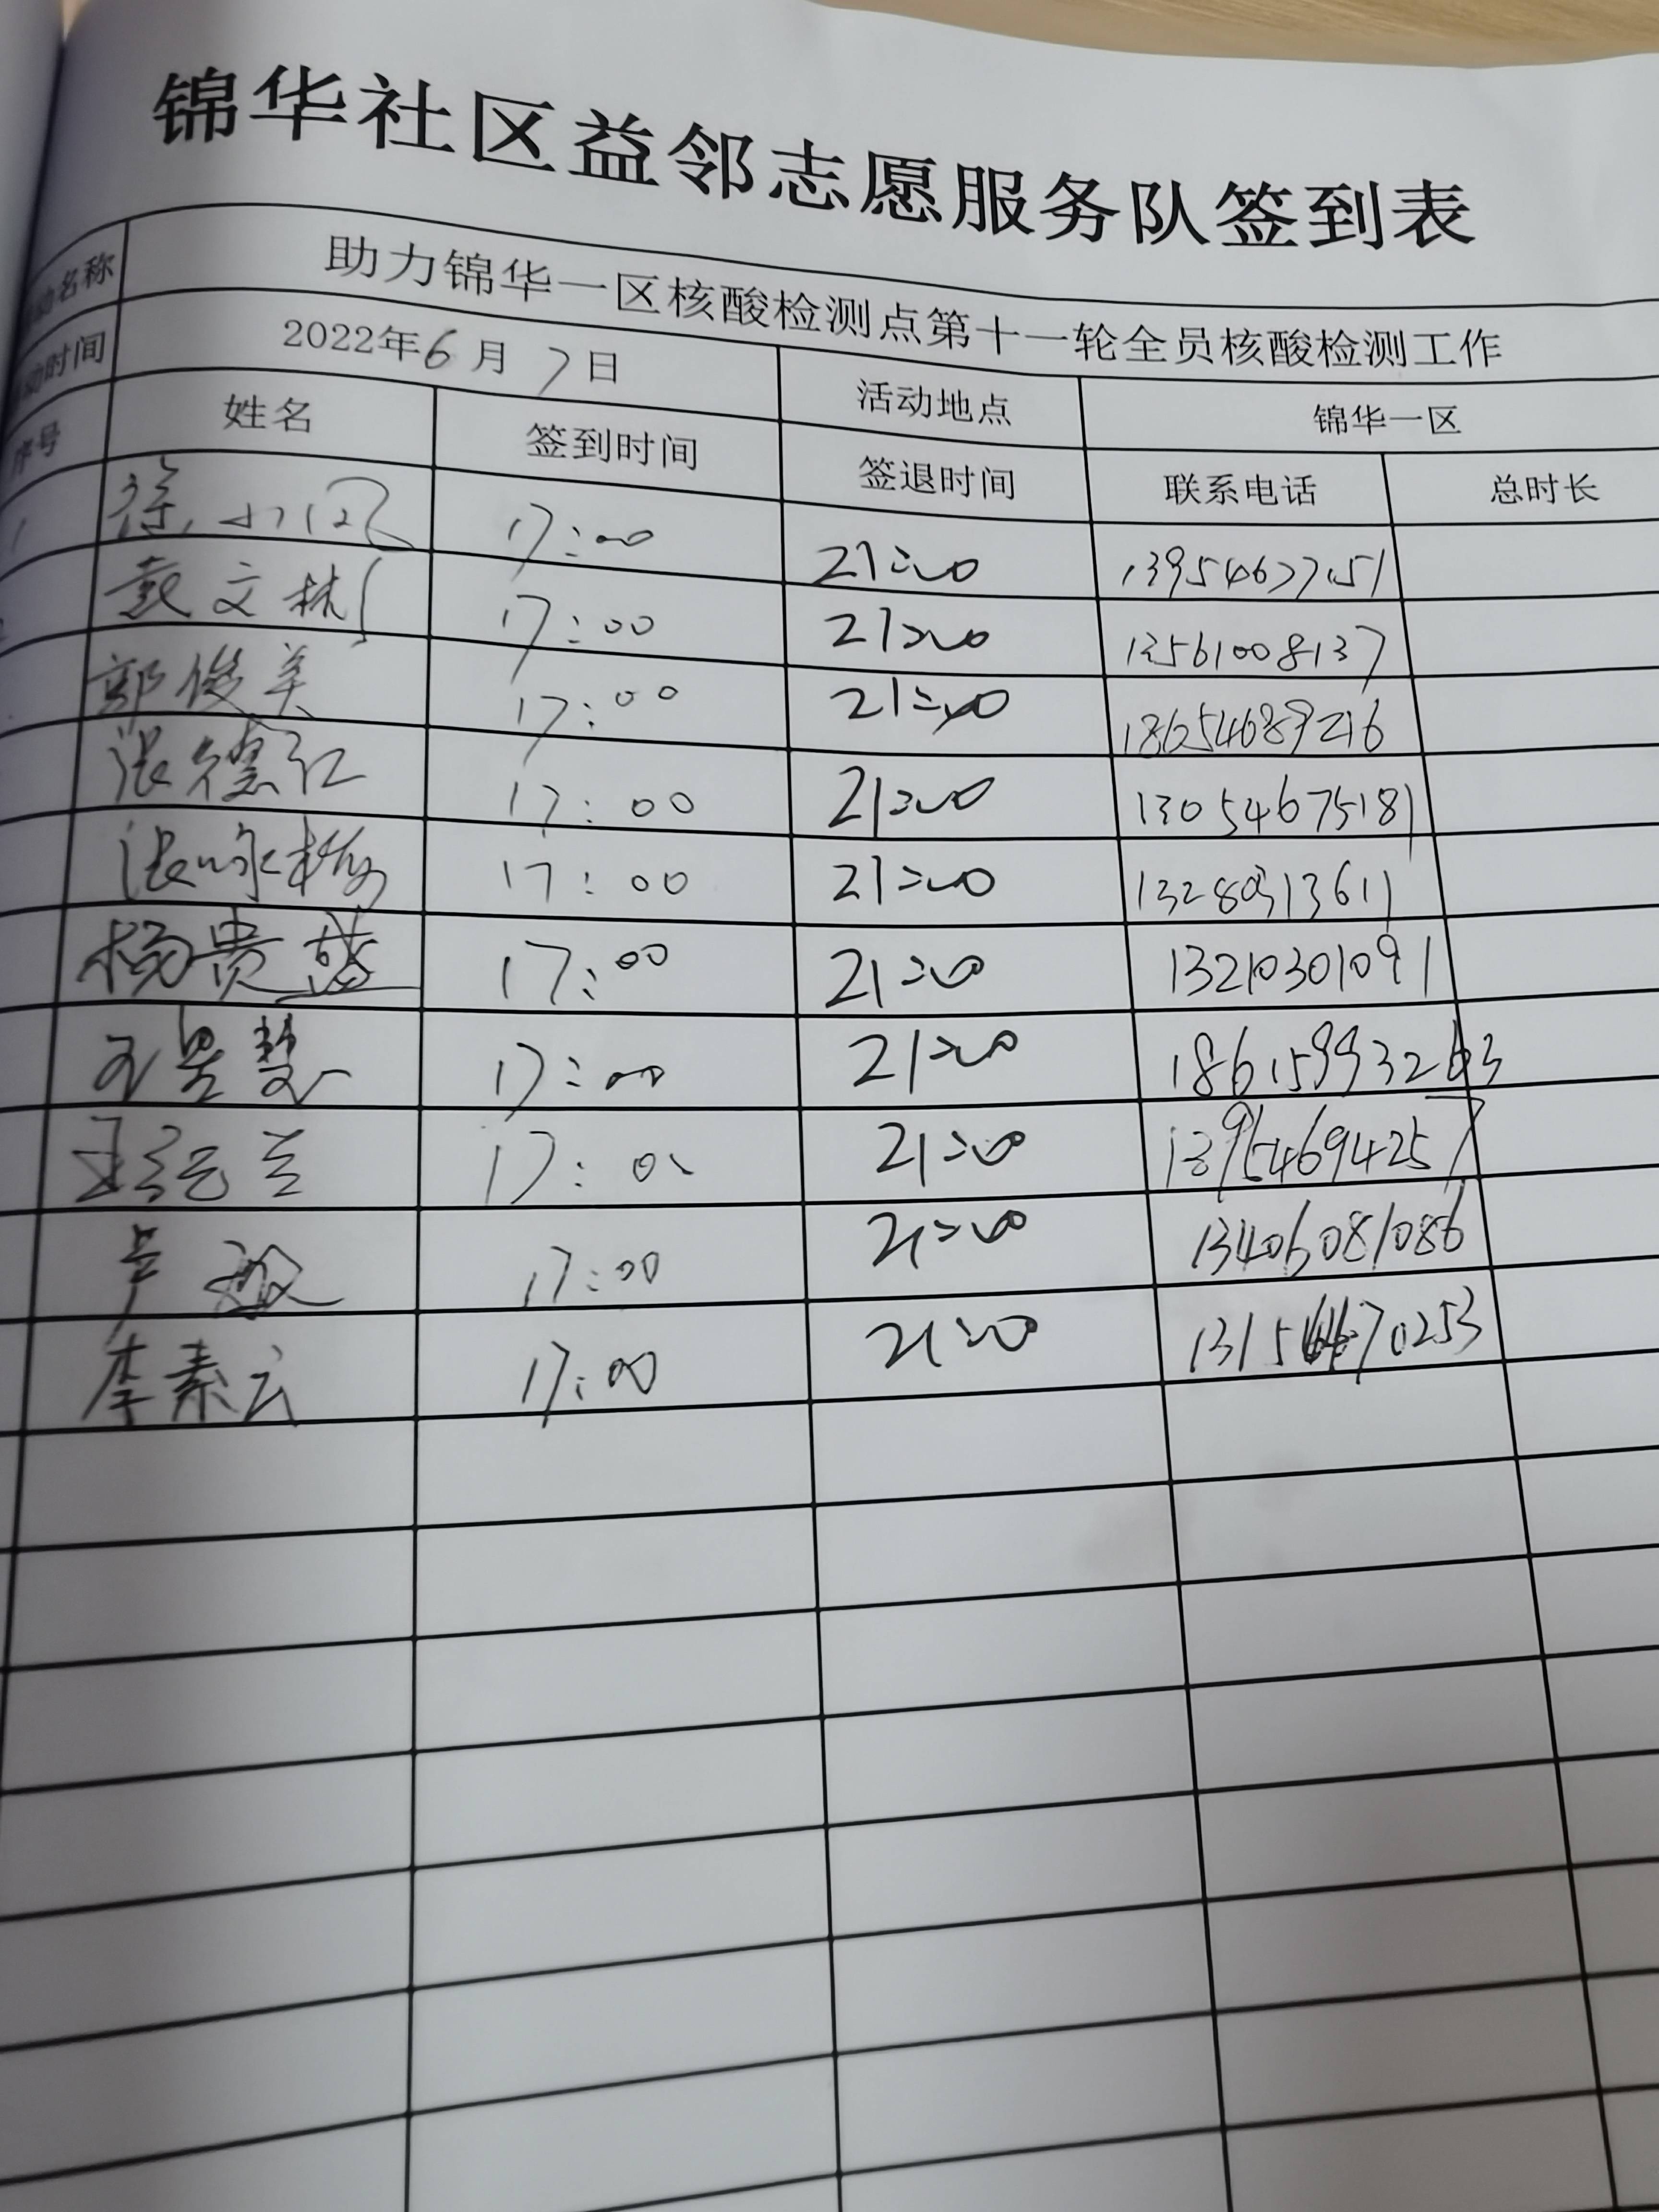 锦华社区益邻志愿服务队签到表
动名称 助力锦华一区核酸检测点第十一轮全员核酸检测工作
动时间 2022年6月7日 活动地点 锦华一区
序号 姓名 签到时间 签退时间 联系电话 总时长
1 徐小凤 17:00 21:00 13954677151
戴文彬 17:00 21:00 13561008137
郭俊美 17:00 21:00 18654689216
张德红 17:00 21:00 13054675181
张咏梅 17:00 21:00
杨贵盛 17:00 21:00 13210301091
王昱慧 17:00 21:00 18615993263
17:00 21:00 13954694257
芦敏 17:00 21:00 13406081086
李素云 17:00 21:00